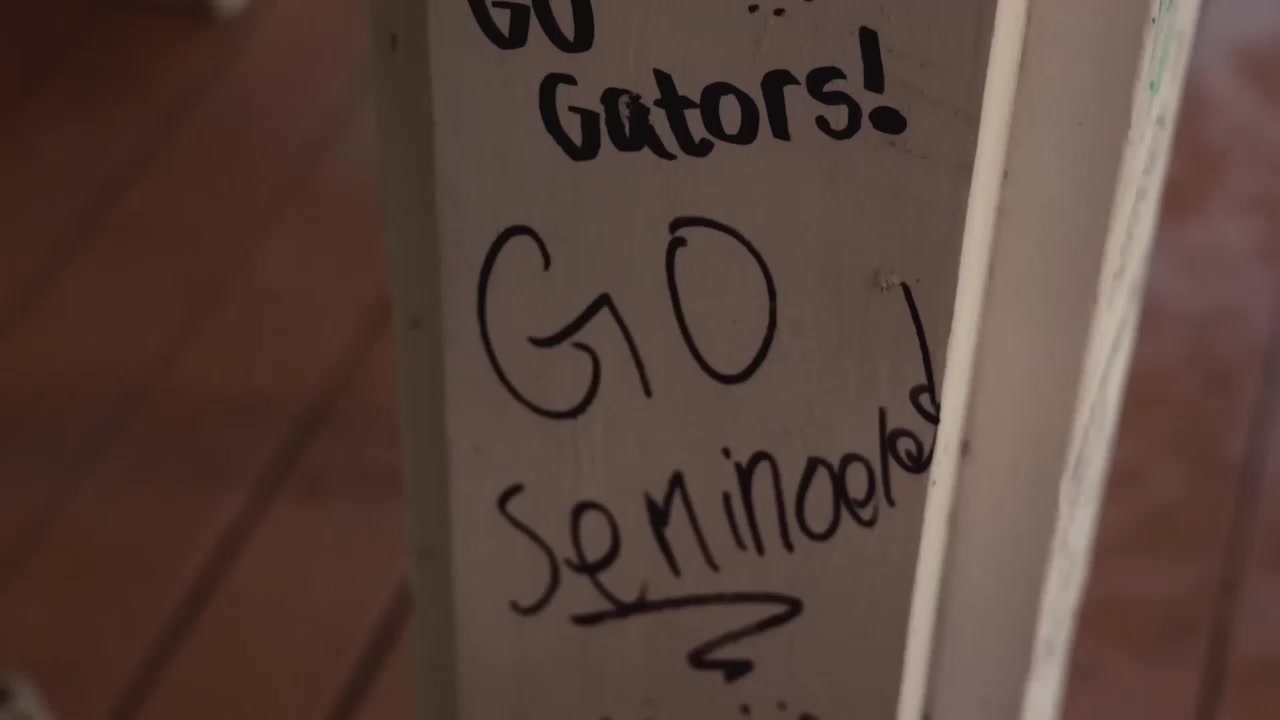 GO
Gators!
GO
Seminoeles!